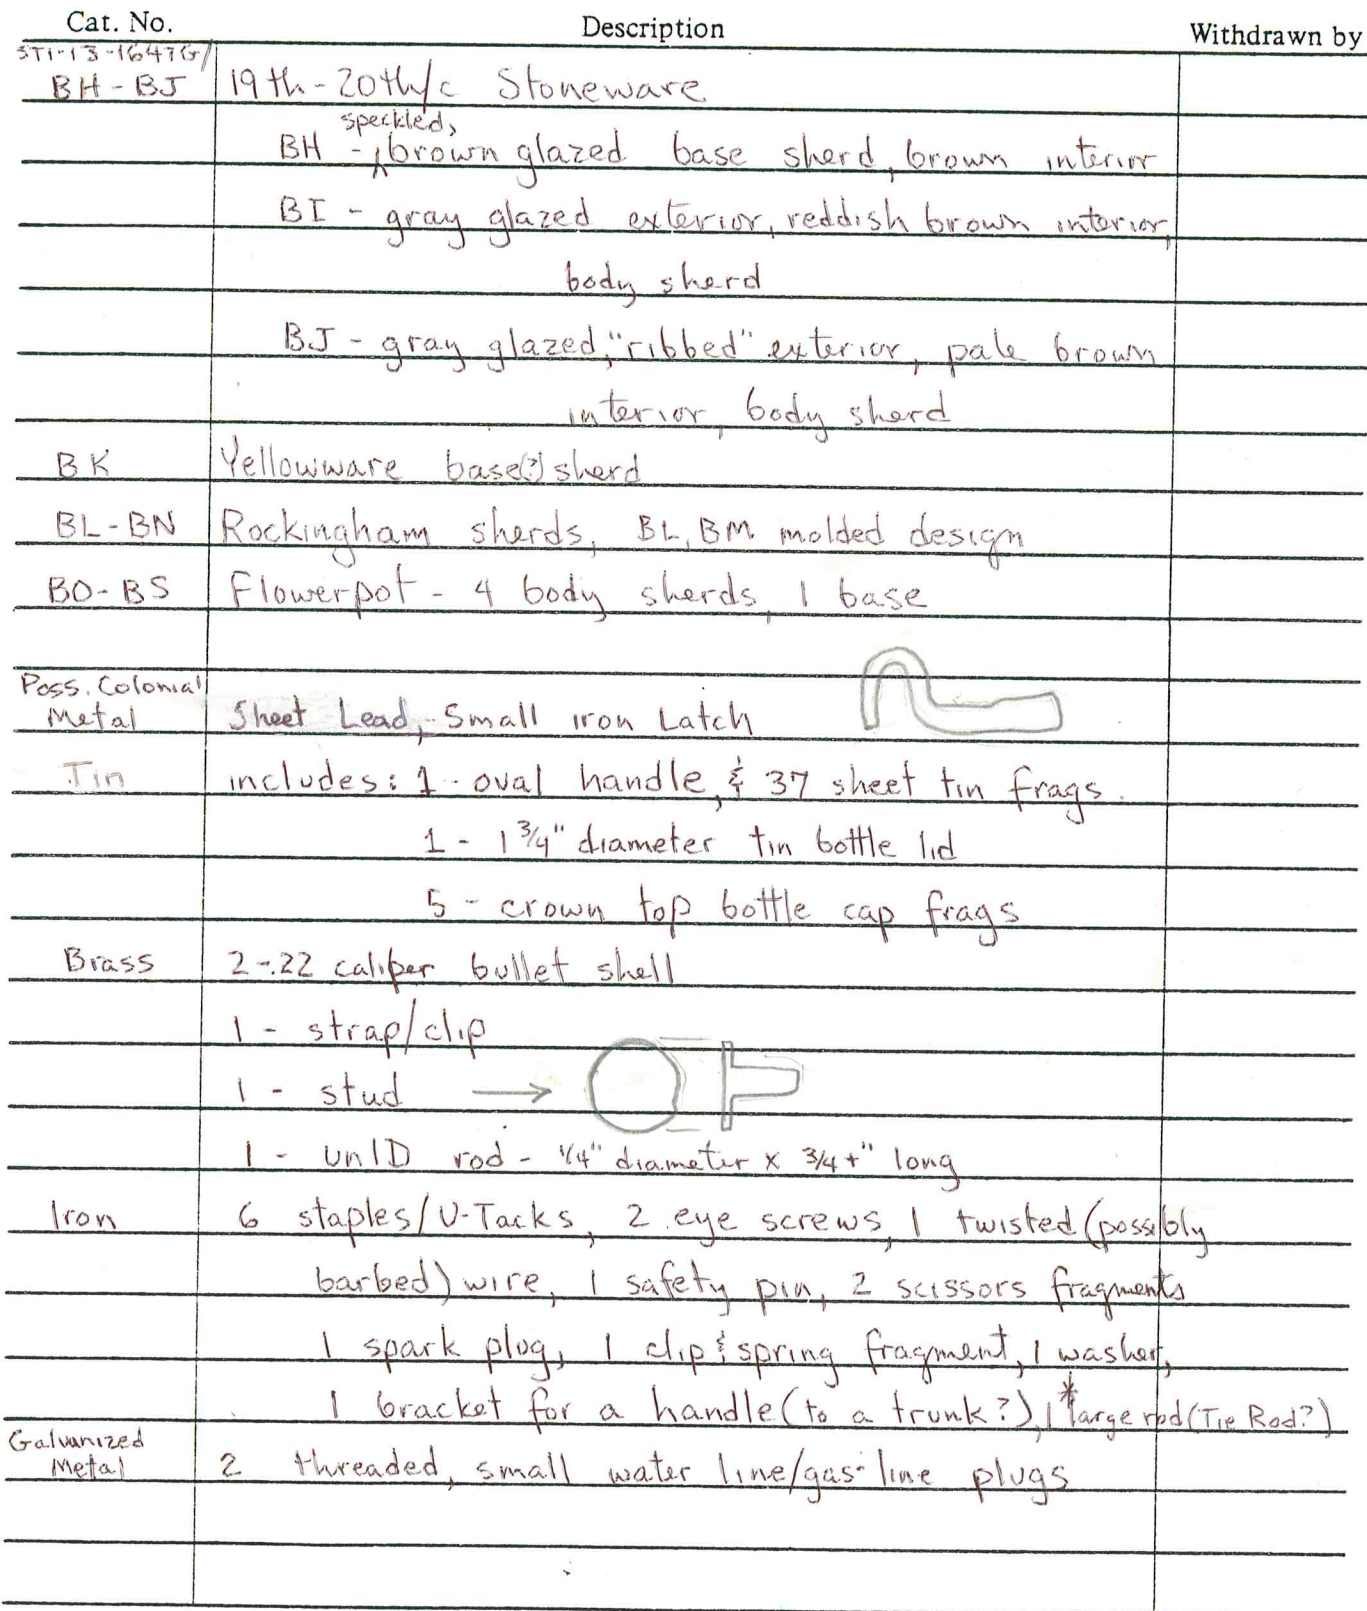 Cat. No. Description Withdrawn by
ST1-13-1647G/
BH-BJ 19th-20th/c Stoneware
speckled,
BH - ^brown glazed base sherd, brown interior
BI - gray glazed exterior, reddish brown interior,
body sherd
BJ - gray glazed, "ribbed" exterior, pale brown
interior, body sherd
BK Yellowware base(?) sherd
BL-BN Rockingham sherds, BL, BM molded design
BO-BS Flowerpot - 4 body sherds, 1 base
Poss. Colonial
Metal Sheet Lead, Small iron Latch
Tin includes: 1 - oval handle, & 37 sheet tin frags.
1 - 1 3/4" diameter tin bottle lid
5 - crown top bottle cap frags
Brass 2-.22 caliper bullet shell
1 - strap/clip
1 - stud →
1 - unID rod - 1/4" diameter x 3/4+" long
Iron 6 staples/U-Tacks, 2 eye screws, 1 twisted (possibly
barbed) wire, 1 safety pin, 2 scissors fragments
1 spark plug, 1 clip & spring fragment, 1 washer,
1 bracket for a handle (to a trunk?), 1 *large rod (Tie Rod?)
Galvanized
Metal 2 threaded, small water line/gas-line plugs